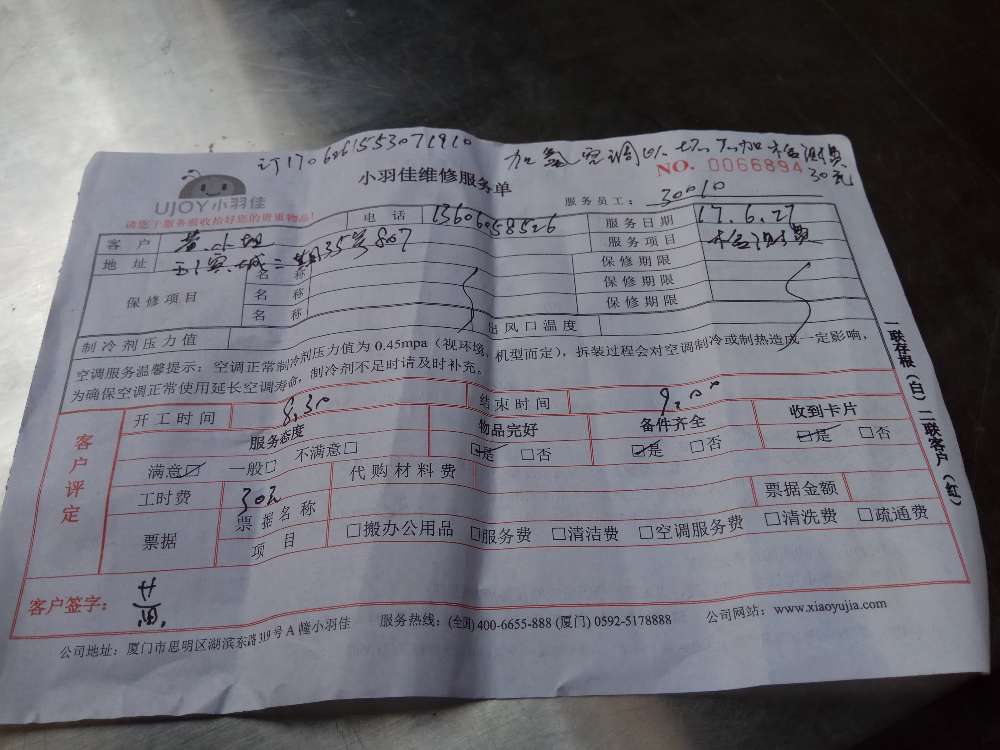 订1706261553071910
加氨空调以切不加 检测费
30元
小羽佳维修服务单
NO. 0066894
UJOY小羽佳
服务员工：30010
请您于服务前收拾好您的贵重物品！
客户 黄小姐 电话 13606058526 服务日期 17.6.27
地址 二期35号807 服务项目 检测费
保修项目 名称 保修期限
名称 保修期限
名称 保修期限
制冷剂压力值 出风口温度
空调服务温馨提示：空调正常制冷剂压力值为 0.45mpa（视环境、机型而定），拆装过程会对空调制冷或制热造成一定影响，
为确保空调正常使用延长空调寿命，制冷剂不足时请及时补充。
客户评定
开工时间 8.30 结束时间 9.00
服务态度 物品完好 备件齐全 收到卡片
满意☑ 一般□ 不满意□ ☑是 □否 ☑是 □否 ☑是 □否
工时费 30元 代购材料费 票据金额
票据 票据名称
项目 □搬办公用品 □服务费 □清洁费 □空调服务费 □清洗费 □疏通费
客户签字： 黄
公司地址：厦门市思明区湖滨东路319号A幢小羽佳 服务热线：(全国) 400-6655-888 (厦门) 0592-5178888 公司网站：www.xiaoyujia.com
一联存根（白）二联客户（红）